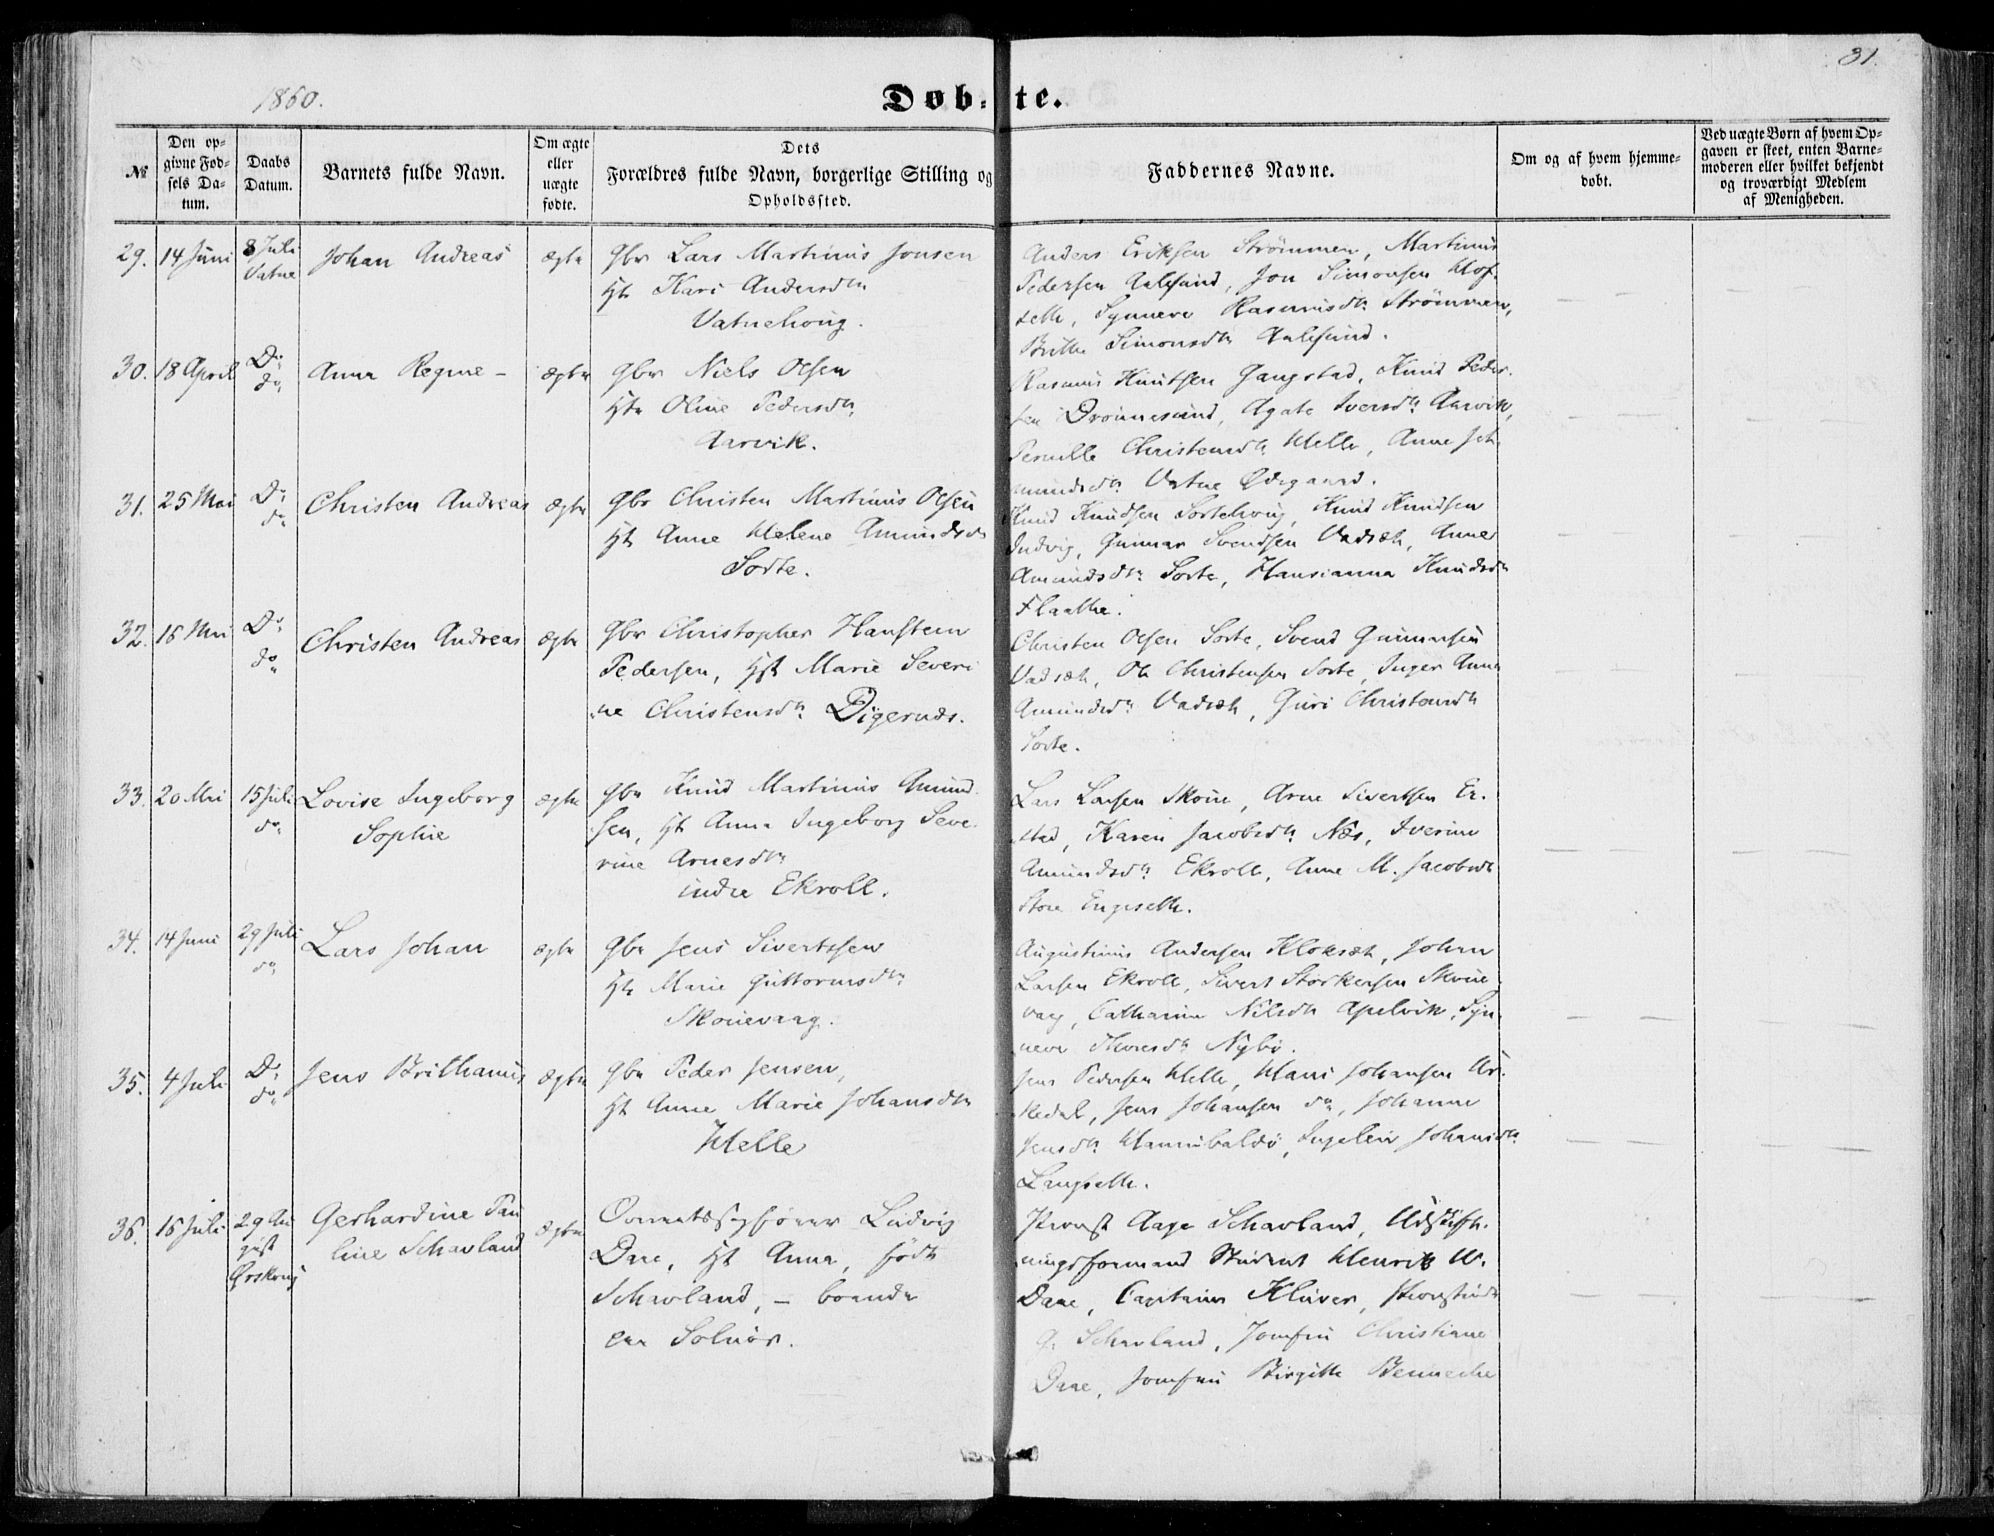 31.
1860.
Døb-te.
№
Den opgivne Fødsels Datum.
Daabs Datum.
Barnets fulde Navn.
Om ægte eller uægte fødte.
Dets Forældres fulde Navn, borgerlige Stilling og Opholdssted.
Faddernes Navne.
Om og af hvem hjemmedøbt.
Ved uægte Børn af hvem Opgaven er skeet, enten Barnemoderen eller hvilket bekjendt og troværdigt Medlem af Menigheden.
29. 14 Juni 8 Juli Vatne Johan Andreas ægte
Gbr Lars Martinus Jonsen
Ht Kari Andersdtr
Vatnehoug.
Anders Eriksen Strømmen, Martinus
Pedersen Aalesund, Jon Simonsen Hof-
seth, Synneve Rasmusdtr Strømmen,
Britte Simonsdtr Aalesund.
30. 18 April Do do Anna Regine - ægte
Gbr Niels Olsen
Ht Oline Pedersdtr
Aarvik.
Rasmus Knutsen Gangstad, Knud Peder-
sen Dronnesund, Agate Iversdtr Aarvik,
Pernille Christensdtr Helle, Anne Joh-
Vatne Ødegaard.
31. 25 Mai Do do Christen Andreas ægte
Gbr Christen Martinus Olsen
Ht Anne Helene Amundsdtr
Sorte.
Knud Knudsen Sortehoug, Knud Knudsen
Gunnar Svendsen Vadsæt, Anne
Amundsdtr Sorte, Hansianna Knudsdtr
Flaathe.
32. 16 Mai Do do Christen Andreas ægte
Gbr Christopher Hansteen
Pedersen, Hst Marie Severi-
ne Christensdtr Digernæs.
Christen Olsen Sorte, Svend Gunnarsen
Vadsæt, Ole Christensen Sorte, Inger Anna
Amundsdtr Vadsæt, Guri Christensdtr
Sorte.
33. 20 Mai 15 Juli do Lovise Ingeborg
Sophie ægte
Gbr Knud Martinus Amund-
sen, Ht Anna Ingeborg Seve-
rine Arnesdtr
indre Ekroll.
Lars Larsen Skoue, Arne Sivertsen Er-
stad, Karen Jacobsdtr Næs, Iverine
Amundsdtr Ekroll, Anne M. Jacobsdtr
Store Engeseth.
34. 14 Juni 29 Juli do Lars Johan ægte
Gbr Jens Sivertsen
Ht Marie Guttormsdtr
Skouevaag.
Augustinus Andersen Kloksæt, Johan
Larsen Ekroll, Sivert Storkersen Skoue-
vaag, Catharine Nilsdtr Apelvik, Syn-
neve Thoresdtr Nybø.
35. 4 Juli Do do Jens Brithanus ægte
Gbr Peder Jensen,
Ht Anne Marie Johansdtr
Helle
Jens Pedersen Helle, Hans Johansen Ur-
kedal, Jens Johansen do, Johanne
Jensdtr Hannibalsø, Ingeleiv Johansdtr
Langseth.
36. 16 Juli 29 August Ørskoug Gerhardine Pau-
line Schavland ægte
Overretssagfører Ludvig
Daae, Ht Anna, født
Schavland, - boende
paa Solnør.
Provst Aage Schavland, Udskift-
ningsformand Student Henrik W.
Daae, Capitain Klüver, Provstinde
G. Schavland, Jomfru Christiane
Daae, Jomfru Birgitte Benneche